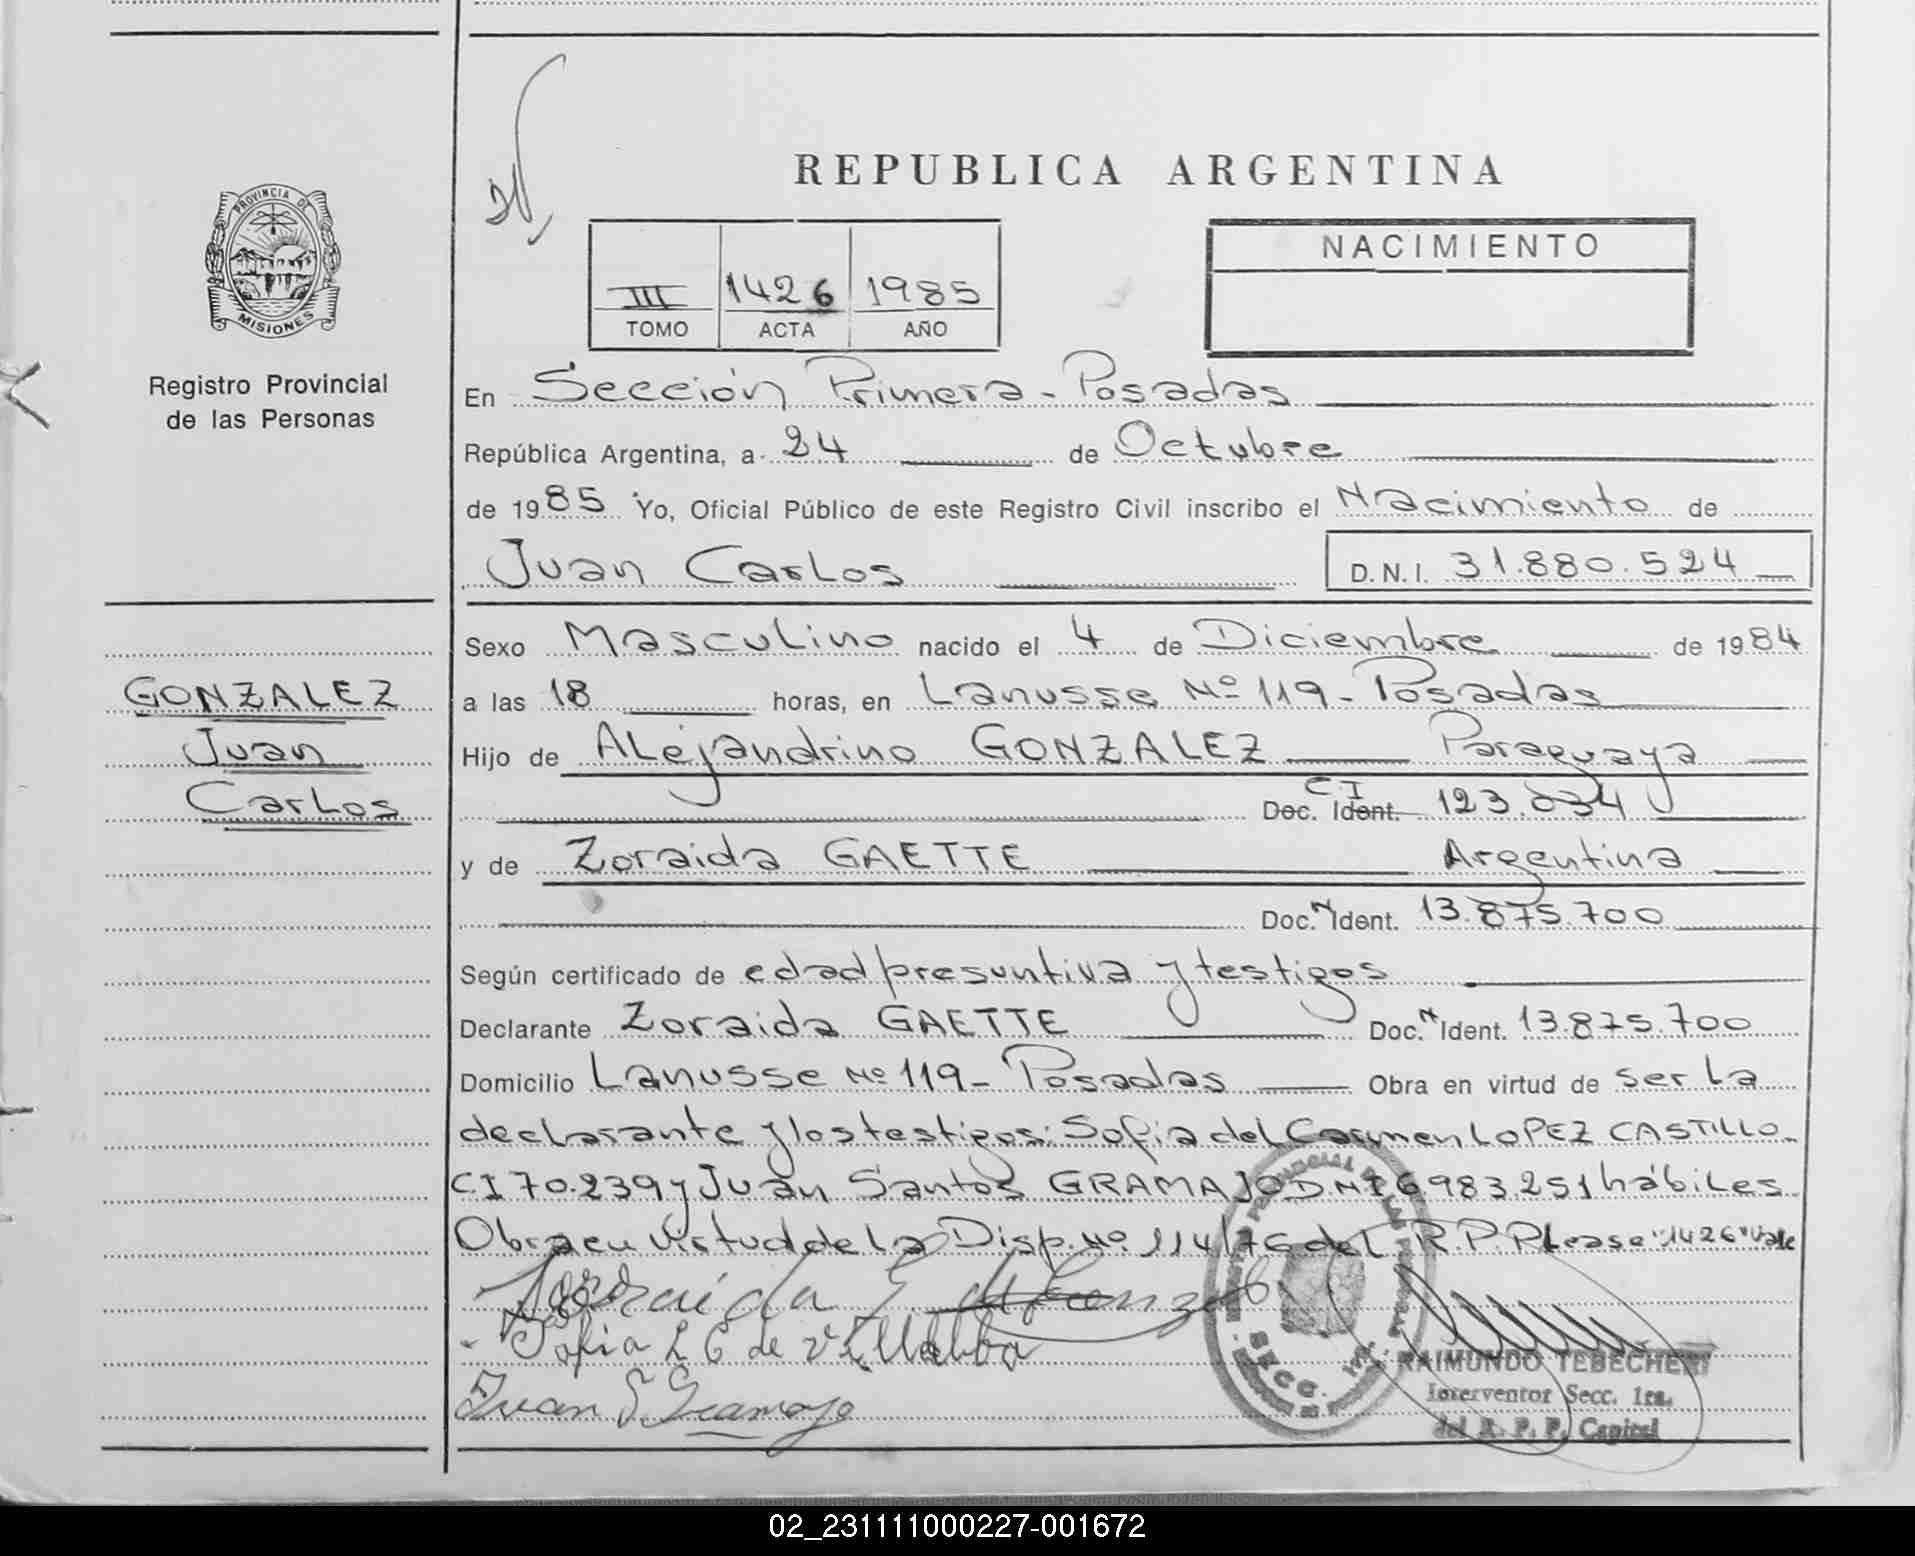 REPUBLICA ARGENTINA
PROVINCIA DE
MISIONES
Registro Provincial
de las Personas
III 1426 1985
TOMO ACTA AÑO
NACIMIENTO
En Sección Primera - Posadas
República Argentina, a 24 de Octubre
de 1985 Yo, Oficial Público de este Registro Civil inscribo el Nacimiento de
Juan Carlos D.N.I. 31.880.524
GONZALEZ
Juan
Carlos
Sexo Masculino nacido el 4 de Diciembre de 1984
a las 18 horas, en Lanusse Nº 119 - Posadas
Hijo de ALejandrino GONZALEZ Paraguaya
C I
Doc. Ident. 123.034
y de Zoraida GAETTE Argentina
Doc. N Ident. 13.875.700
Según certificado de edad presuntiva y testigos
Declarante Zoraida GAETTE Doc. N Ident. 13.875.700
Domicilio Lanusse Nº 119 - Posadas Obra en virtud de ser La
declarante y los testigos: Sofia del Carmen LOPEZ CASTILLO
CI 70.239 y Juan Santos GRAMAJO DNI 6983251 hábiles
Obra en virtud de la Disp. Nº 114/76 del R.P.P Lease "1426" Vale
Sofia L C de Villalba
Juan S. Gramajo
SECC. 1ra.
RAIMUNDO TEBECHERI
Interventor Secc. 1ra.
del R. P. P. Capital
02_231111000227-001672